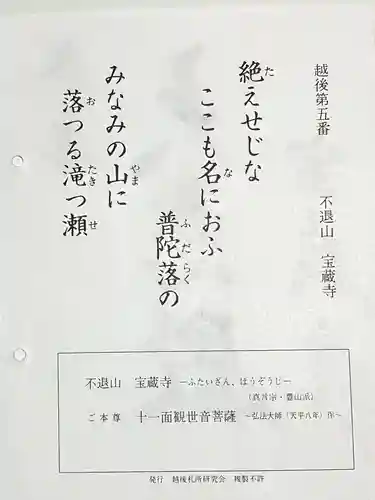 越後第五番　不退山　宝蔵寺
絶えせじな
ここも名におふ
普陀落の
みなみの山に
落つる滝つ瀬
た
な
ふだらく
やま
お
たき
せ
不退山　宝蔵寺 ―ふたいざん、ほうぞうじ―
（真言宗・豊山派）
ご本尊　十一面観世音菩薩 ～弘法大師（天平八年）作～
発行　越後札所研究会　複製不許